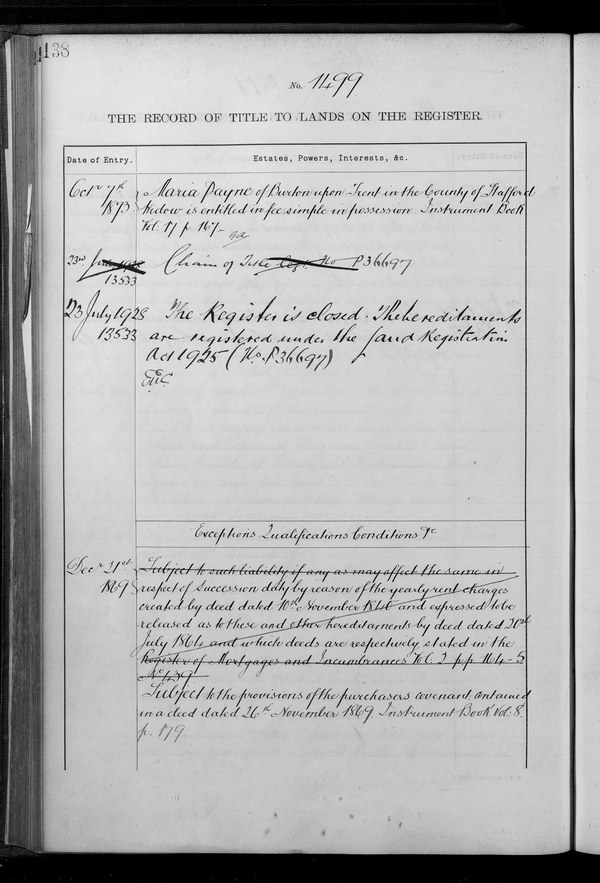 138
No. 1499
THE RECORD OF TITLE TO LANDS ON THE REGISTER.
Date of Entry. Estates, Powers, Interests, &c.
Octr 7th Maria Payne of Burton upon Trent in the County of Stafford
1873 Widow is entitled in fee simple in possession. Instrument Book
Vol. 17 p. 167
23rd July 1928 Chain of Title Regd. No P36697
13533
23 July 1928 The Register is closed. The hereditaments
13533 are registered under the Land Registration
Act 1925 (No. P.36697)
Exceptions Qualifications Conditions &c
Decr 31st Subject to such liability if any as may affect the same in
1869 respect of Succession duty by reason of the yearly rent charges
created by deed dated 10th November 1840 and expressed to be
released as to these and other hereditaments by deed dated 20th
July 1864 and which deeds are respectively stated in the
Register of Mortgages and Incumbrances Vol. 2 p.p. 164-5
No. 439
Subject to the provisions of the purchasers covenant contained
in a deed dated 26th November 1869. Instrument Book Vol. 8.
p. 179.